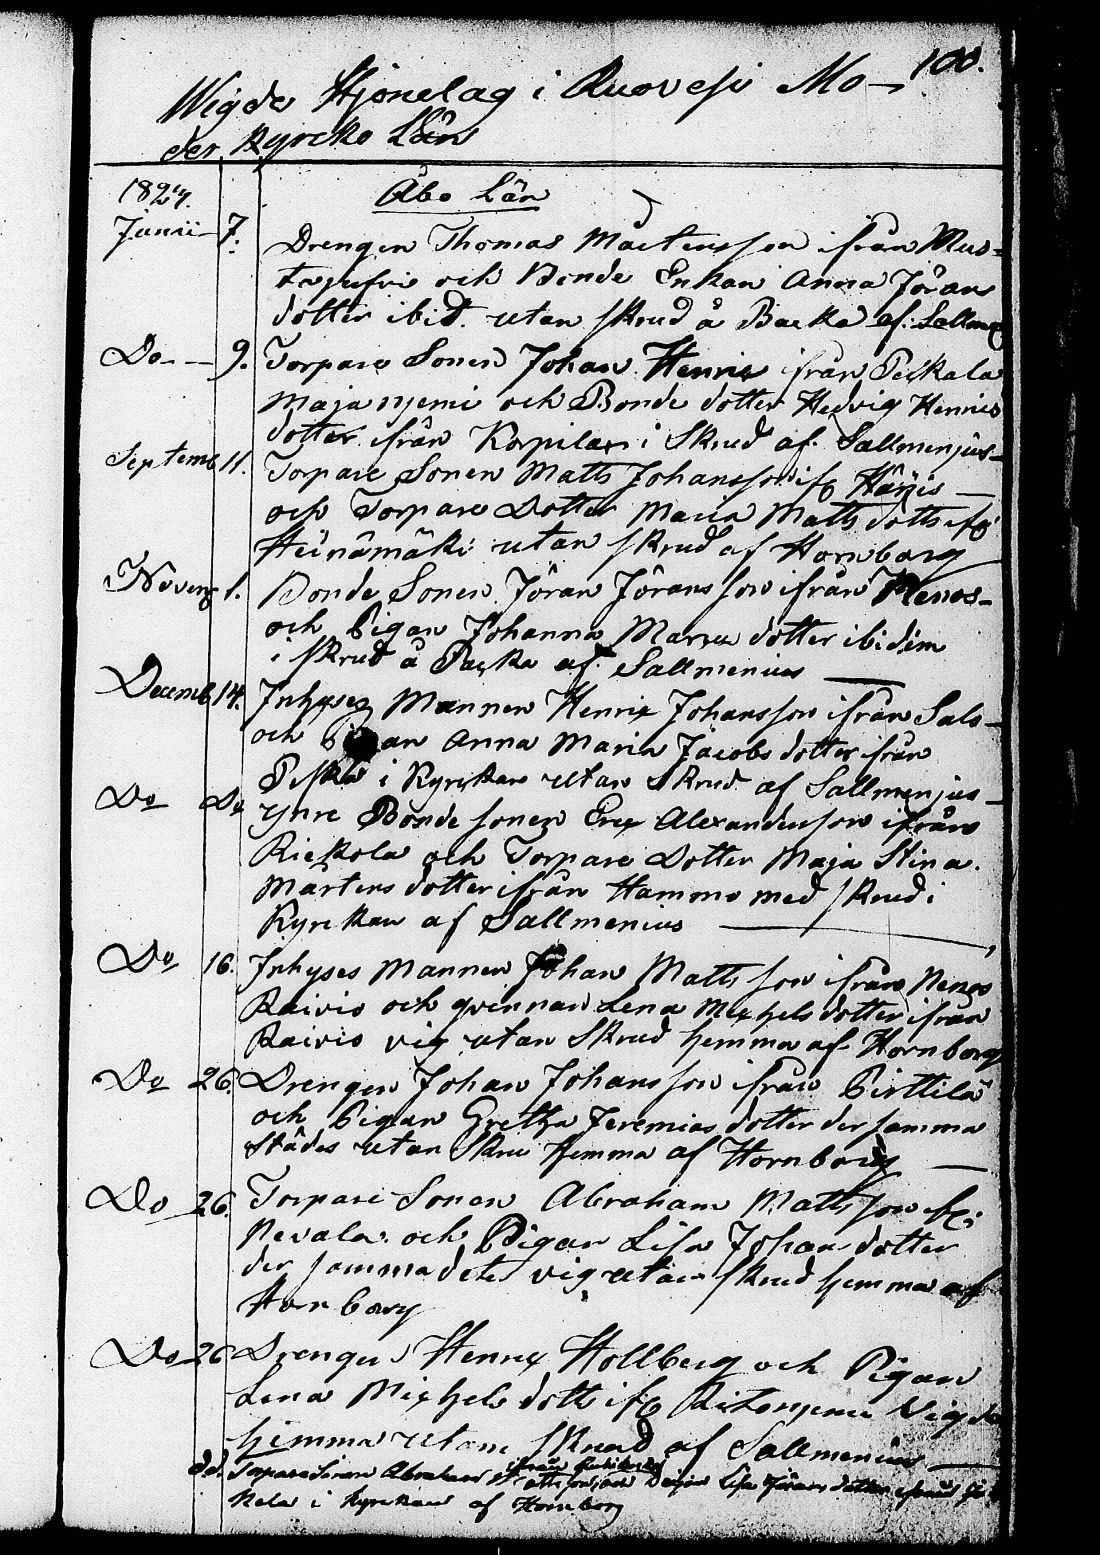 100.
Wigde Hjonelag i Ruovesi Mo-
der Kyrcko Län
1824. Åbo Län
Junii 7. Drengen Thomas Mårtensson ifrån Mus-
och Bonde Enkan Anna Jöran
dotter ibid. utan skrud å Backa af: Sallme
Do 9. Torpare Sonen Johan Henrix ifrån Peskala
Majanjemi och Bonde dotter Hedvig Henrics
dotter ifrån Korpilax i Skrud af Sallmenjus-
Septemb 11. Torpare Sonen Matts Johansson if
och Torpare Dotter Maria Matts dotts if
Heinämäki utan skrud af Hornborg
Novemb 1. Bonde Sonen Jöran Jöransson ifrån
och Pigan Johanna dotter ibidim
i skrud å af Sallmenius
Decemb 14. Inhyses Mannen Henrix Johansson ifrån Salo
och Anna Maria Jacobs dotter ifrån
i Kyrckan utan Skrud af Sallmenjus
Do Do Ynre Bonde sonen Erix Alexandersson ifrån
Riekola och Torpare Dotter Maja Stina
Mårtens dotter ifrån Hammo med skrud i
Kyrckan af Sallmenius
Do 16. Inhyses Mannen Johan Mattsson ifrån
Raivio och qvinnan Lena Mixhels dotter ifrån
Raivio vig utan Skrud hemma af Hornborg
Do 26. Drengen Johan Johansson ifrån Pirttilä
och Pigan Gretha Jeremias dotter der samma
städes utan Skru hemma af Hornborg
Do 26. Torpare Sonen Abraham Mattsson
Nevala: och Pigan Lisa Johan dotter
der samma vig utan skrud hemma af
Hornborg
Do 26 Drengen Henrix Hollberg och Pigan
Lena Mixhels dotts if Vigde
hemma utan skrud af Sallmenius
ifrån
do. Torpare Sonen Abraham Mattsson och Lisa Jöran dotter ifrån
i Kyrckan af Hornborg